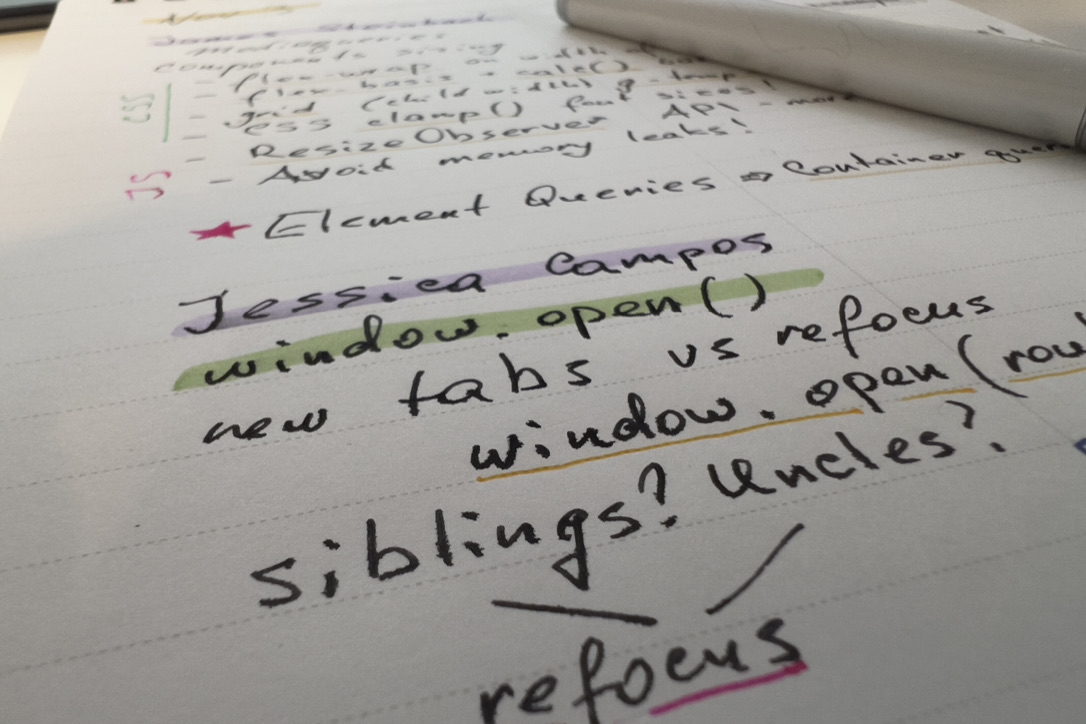 James Steinbach
Mediaqueries
components sizing
- flex-wrap on width of
- flex-basis + calc()
- grid (child width)
- css clamp() font sizes!
CSS
- Resize Observer API - more
- Avoid memory leaks!
JS
★ Element Queries ⇒ Container quer
Jessica Campos
window.open()
new tabs vs refocus
window.open(rou
siblings? Uncles?
refocus